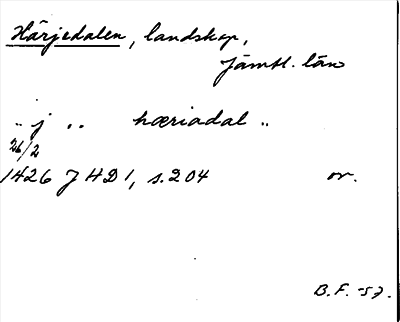 Härjedalen, landskap,
Jämtl. län
.. j .. hæriadal ..
26/2
1426 JHD1, s.204 or.
B.F. -57.